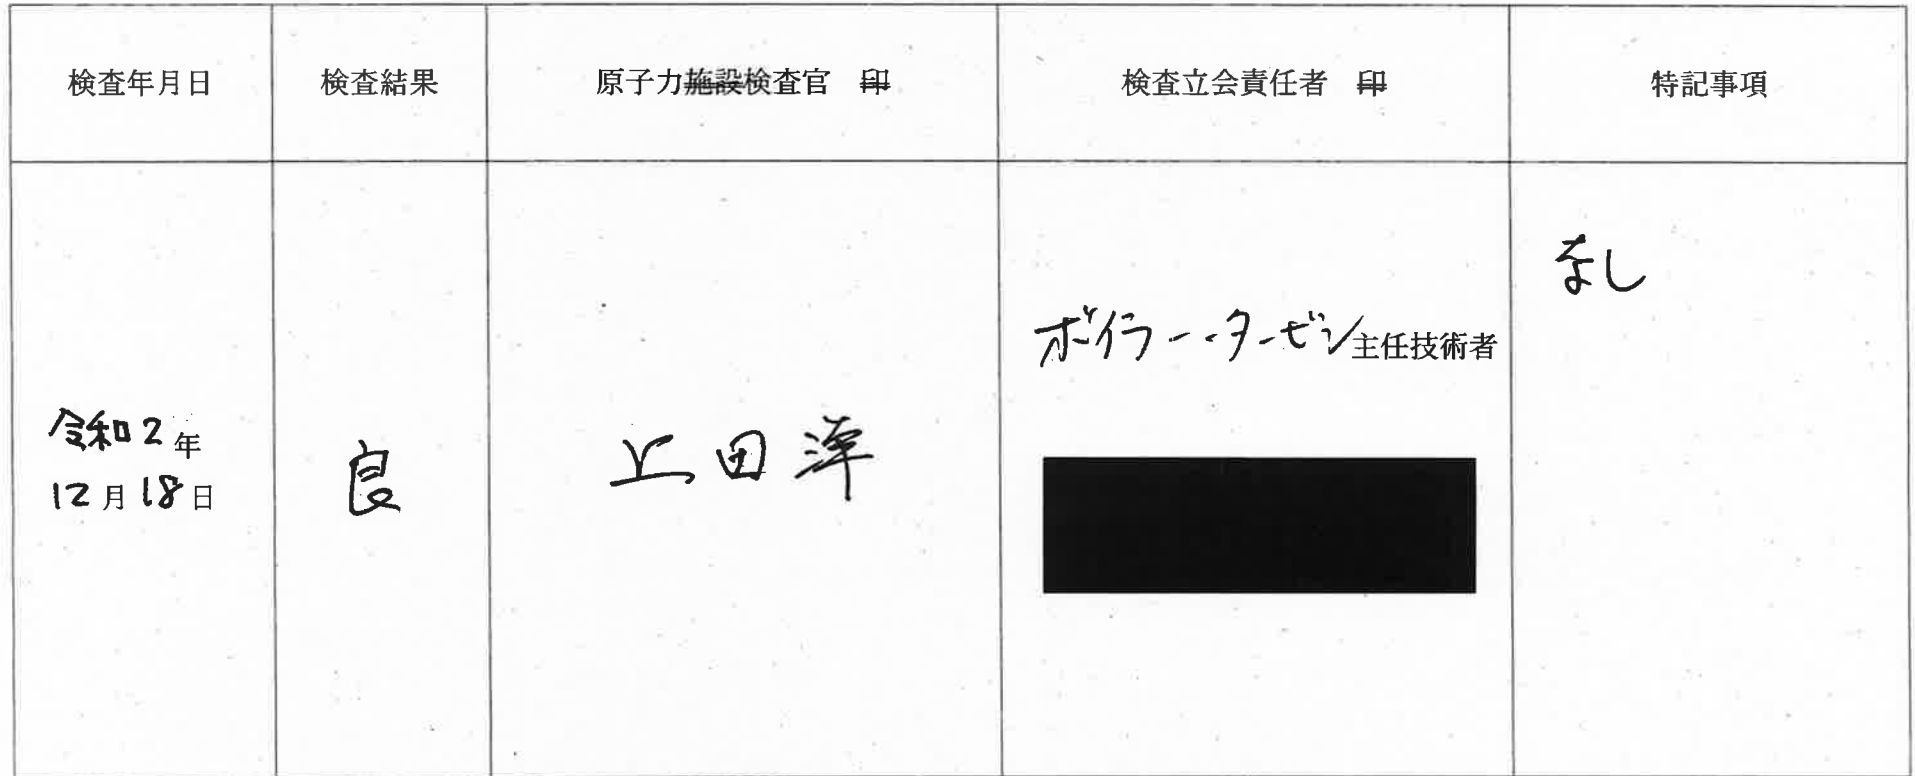 検査年月日
検査結果
原子力施設検査官 印
検査立会責任者 印
特記事項
令和2年
12月18日
良
上田洋
ボイラー・タービン主任技術者
なし